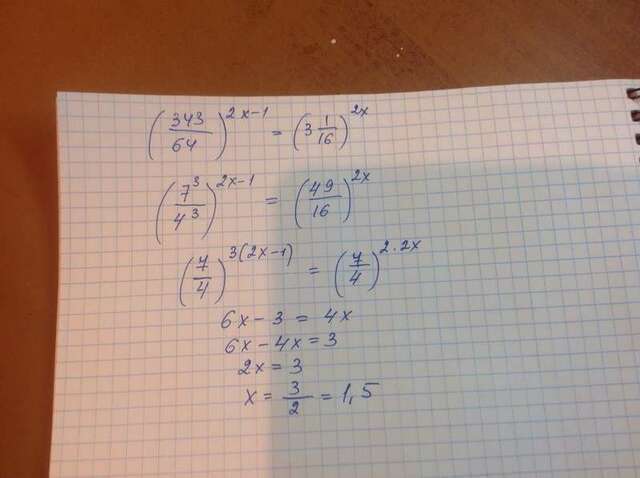 (343/64)^(2x-1) = (3 1/16)^(2x)
(7^3/4^3)^(2x-1) = (49/16)^(2x)
(7/4)^(3(2x-1)) = (7/4)^(2·2x)
6x - 3 = 4x
6x - 4x = 3
2x = 3
x = 3/2 = 1,5